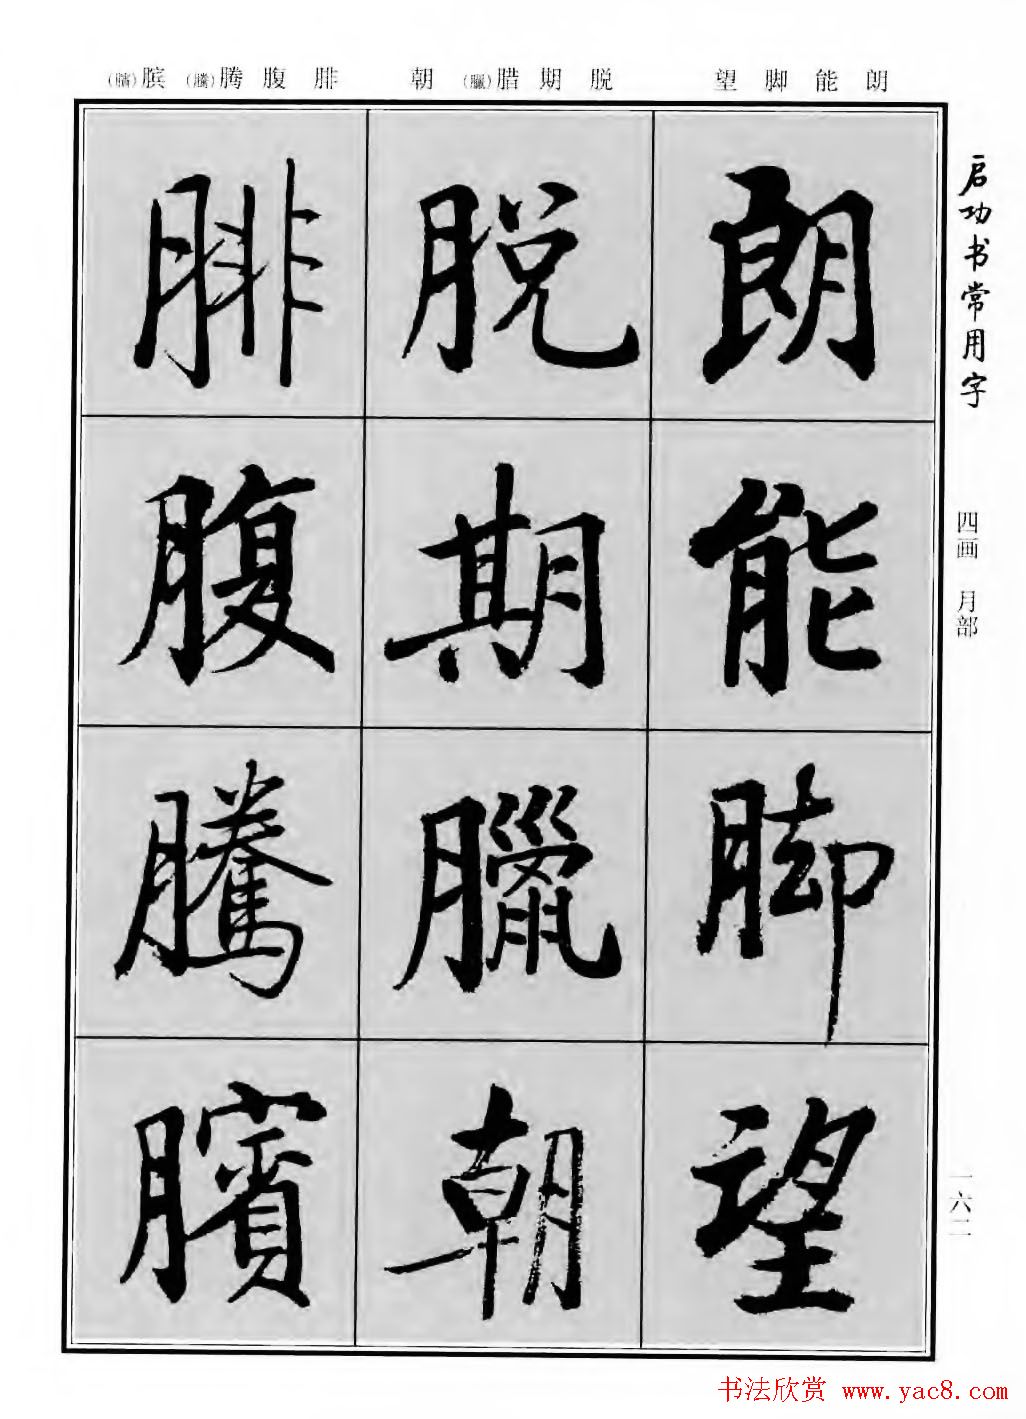 朗能脚望 脱期腊(臘)朝 腓腹腾(騰)膑(臏)
启功书常用字
四画 月部
一六二
朗能脚望
脱期臘朝
腓腹騰臏
书法欣赏 www.yac8.com